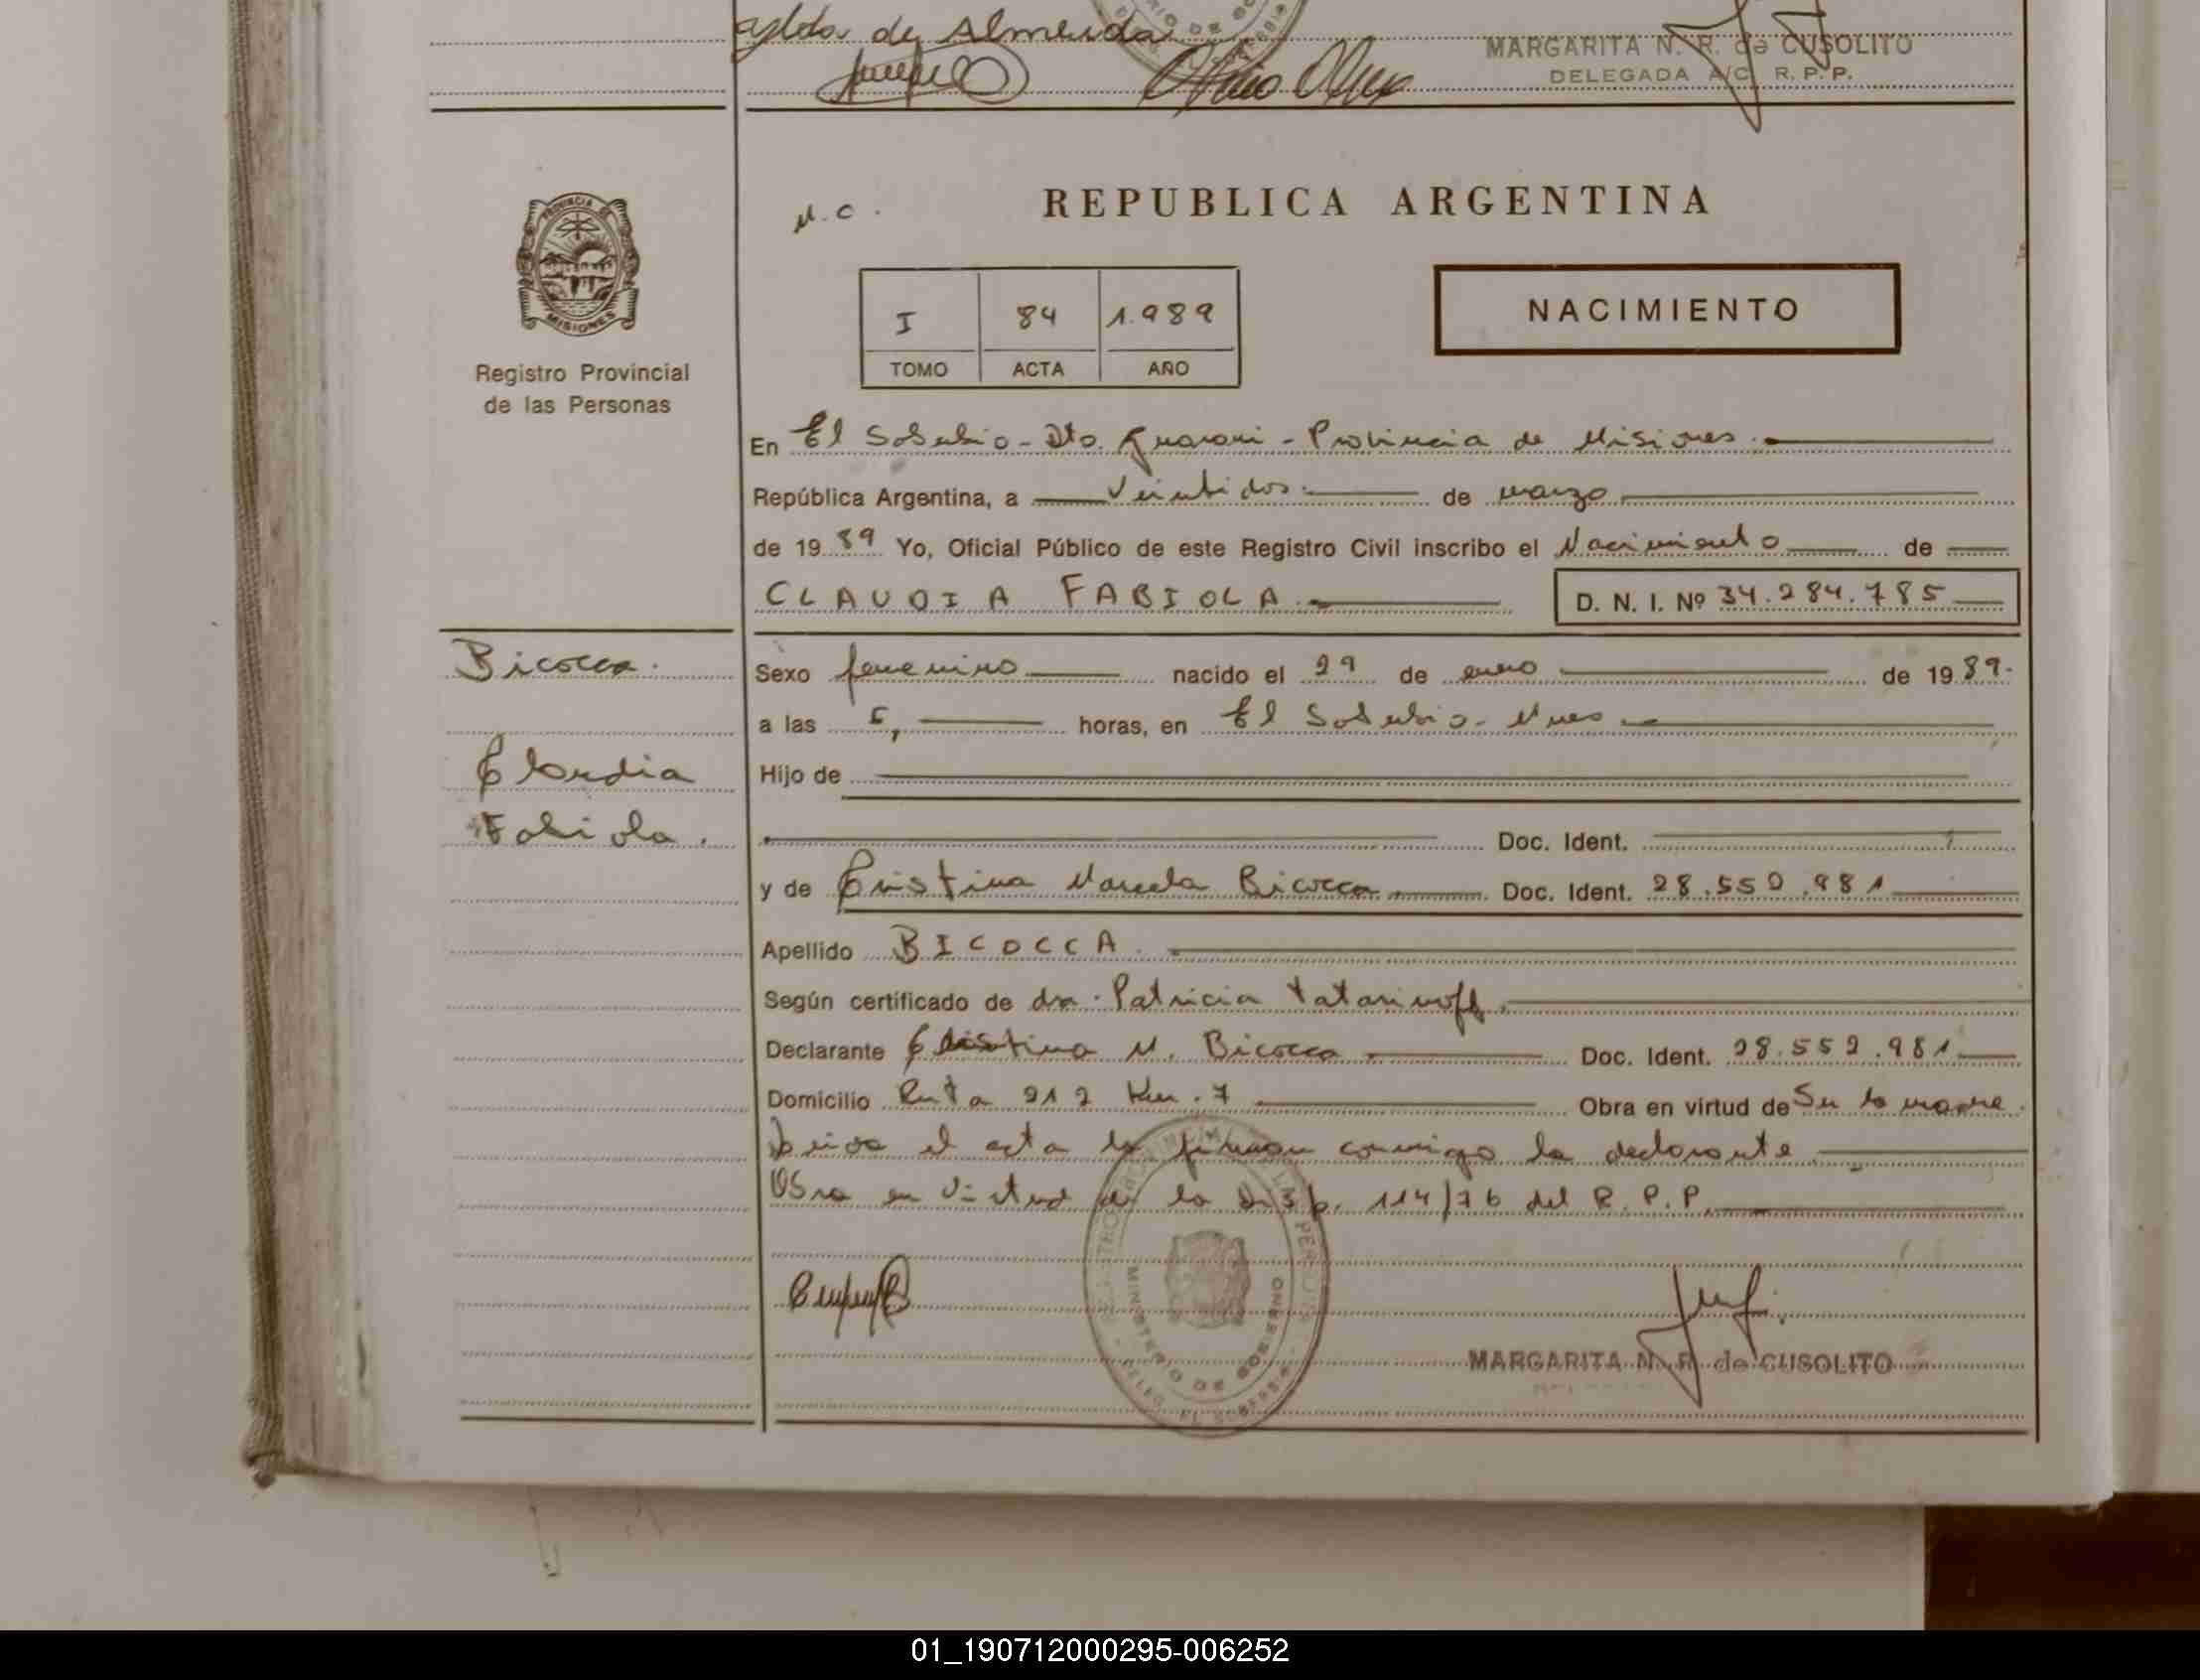 de Almeida
MARGARITA N. R. de CUSOLITO
DELEGADA A/C. R. P. P.
PROVINCIA DE
MISIONES
Registro Provincial
de las Personas
N.C.
REPUBLICA ARGENTINA
I 84 1.989
TOMO ACTA AÑO
NACIMIENTO
En El Soberbio - Dto. Guarani - Provincia de Misiones.
República Argentina, a Veintidos de marzo
de 1989 Yo, Oficial Público de este Registro Civil inscribo el Nacimiento de
CLAUDIA FABIOLA. D. N. I. Nº 34.284.785
Bicocca.
Claudia
Fabiola.
Sexo femenino nacido el 29 de enero de 1989.
a las 5, horas, en El Soberbio - Mnes
Hijo de
Doc. Ident.
y de Cristina Marcela Bicocca Doc. Ident. 28.559.981
Apellido BICOCCA.
Según certificado de dra. Patricia Tatarinoff.
Declarante Cristina M. Bicocca Doc. Ident. 28.559.981
Domicilio Ruta 212 Km. 7 Obra en virtud de Su la madre.
Leida el acta la firman conmigo la declarante
Obra en virtud de la Disp. 114/76 del R.P.P.
MINISTERIO DE GOBIERNO
MARGARITA N. R. de CUSOLITO
01_190712000295-006252